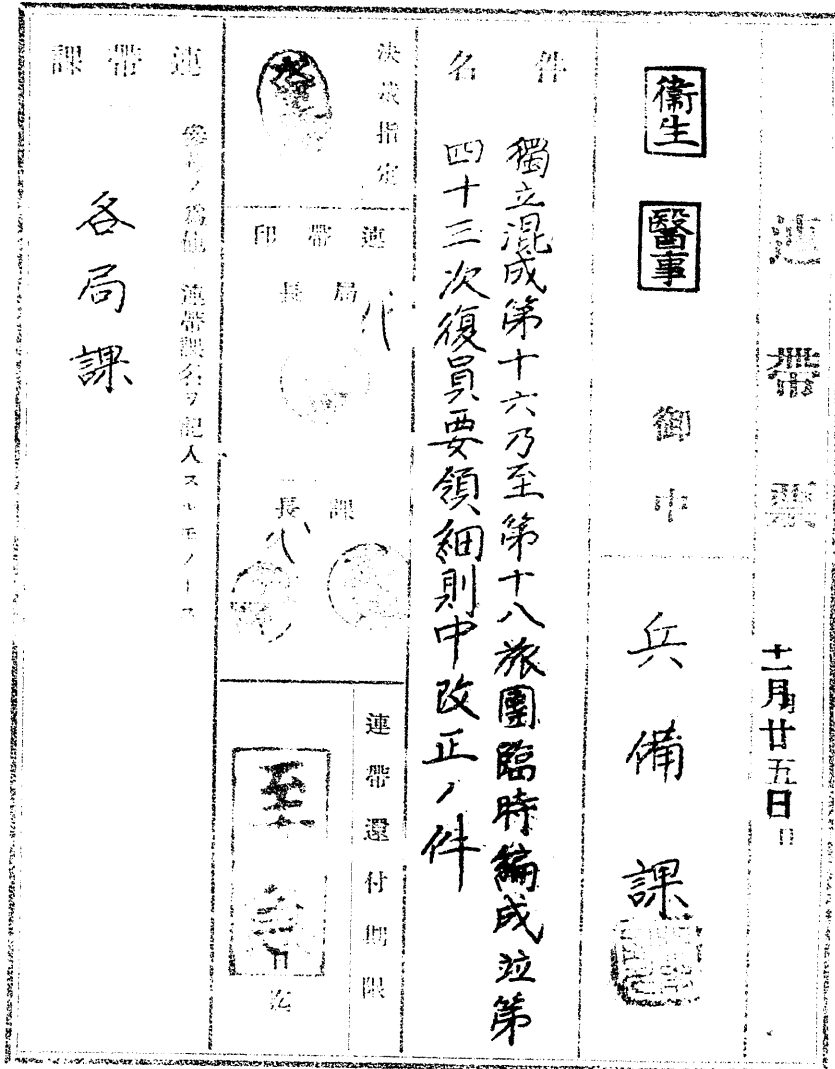 連帶票
十一月廿五日
衞生
醫事
御中
兵備課
件名
獨立混成第十六乃至第十八旅團臨時編成竝第
四十三次復員要領細則中改正ノ件
決裁指定
連帶印
局長
課長
連帶還付期限
至急
日迄
連帶課
ノ爲他ノ連帶課名ヲ記入スルモノトス
各局課